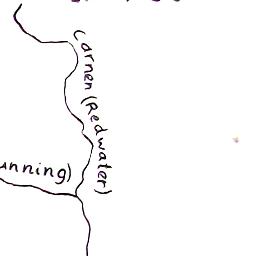 Carnen (Redwater)
unning)